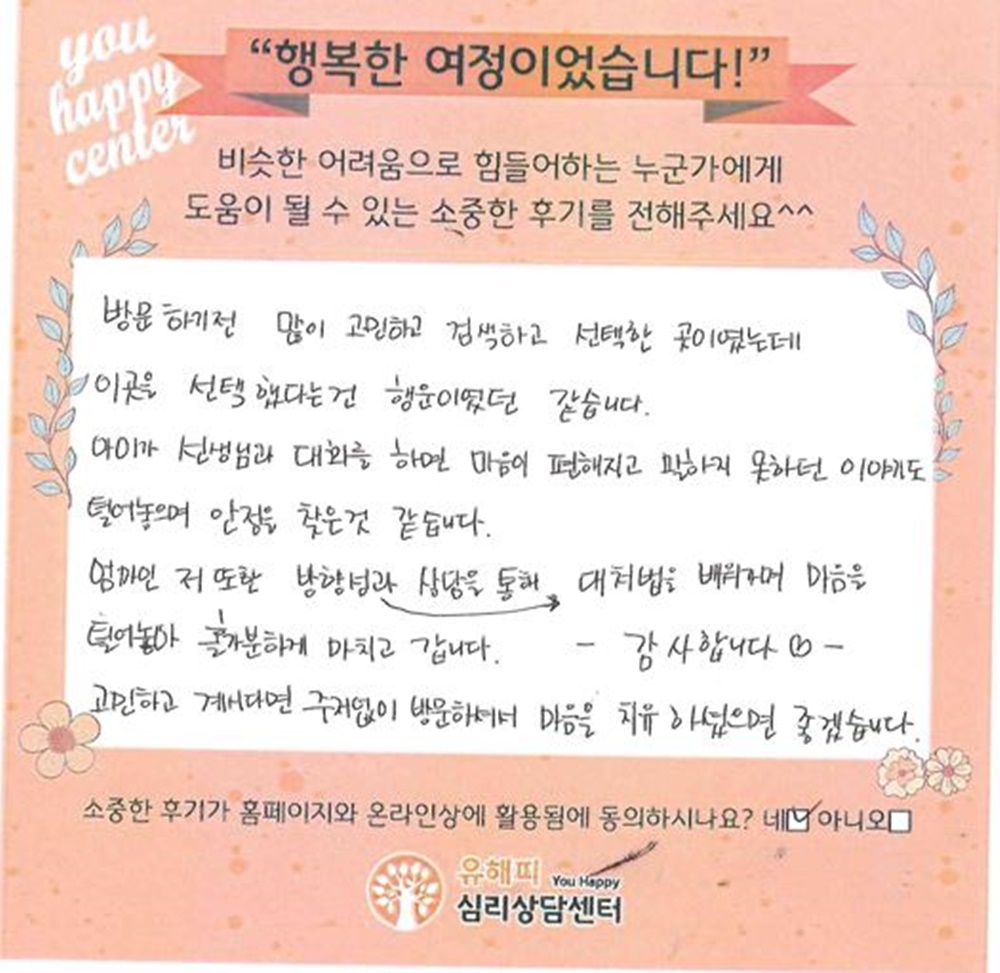 you
happy
center
“행복한 여정이었습니다!”
비슷한 어려움으로 힘들어하는 누군가에게
도움이 될 수 있는 소중한 후기를 전해주세요^^
방문 하기전 많이 고민하고 검색하고 선택한 곳이였는데
이곳을 선택 했다는건 행운이였던 같습니다.
아이가 선생님과 대화를 하면 마음이 편해지고 말하지 못하던 이야기도
털어놓으며 안정을 찾은것 같습니다.
엄마인 저 또한 방향성과 상담을 통해 대처법을 배워가며 마음을
털어놓아 홀가분하게 마치고 갑니다. - 감사합니다♡ -
고민하고 계시다면 주저없이 방문하셔서 마음을 치유 하셨으면 좋겠습니다.
소중한 후기가 홈페이지와 온라인상에 활용됨에 동의하시나요? 네☑ 아니오□
유해피 You Happy
심리상담센터